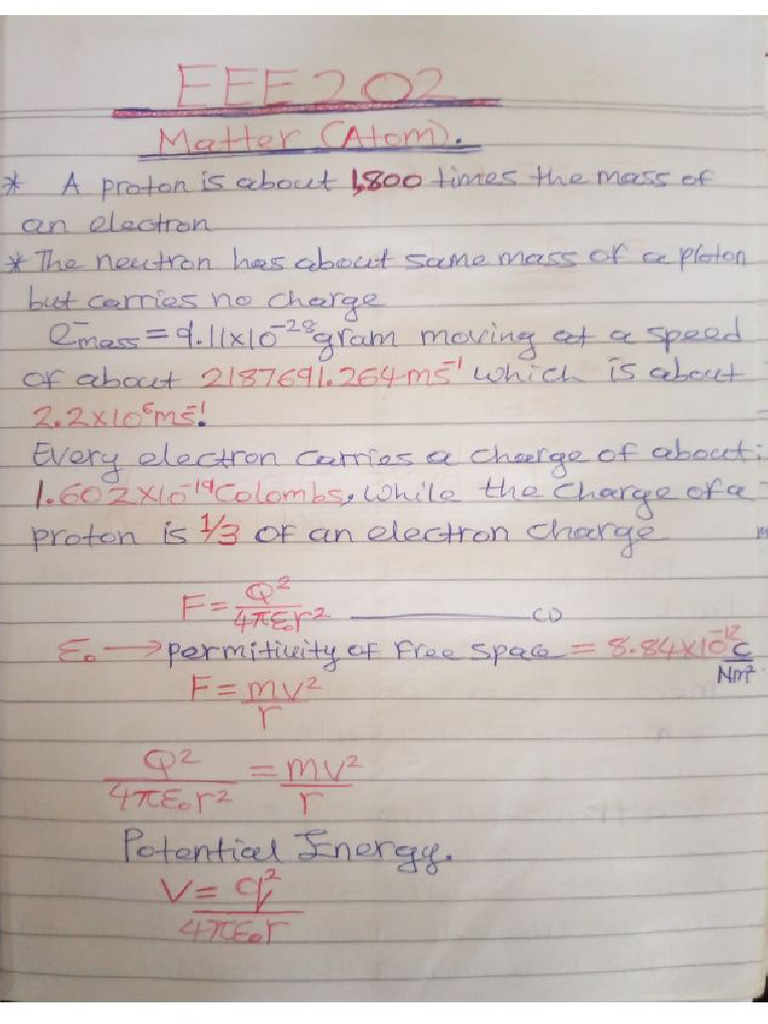 EEE202
Matter (Atom).
* A proton is about 1,800 times the mass of
an electron
* The neutron has about same mass of a ploton
but carries no charge
e⁻mass = 9.11x10⁻²⁸gram moving at a speed
of about 2187691.264ms⁻¹ which is about
2.2x10⁶ms⁻¹.
Every electron carries a charge of about:
1.602x10⁻¹⁹Colombs, while the charge of a
proton is 1/3 of an electron charge
F = Q²/4πε₀r² (1)
ε₀ → permitivity of free space = 8.84x10⁻¹² C/Nm²
F = mv²/r
Q²/4πε₀r² = mv²/r
Potential Energy.
V = q²/4πε₀r